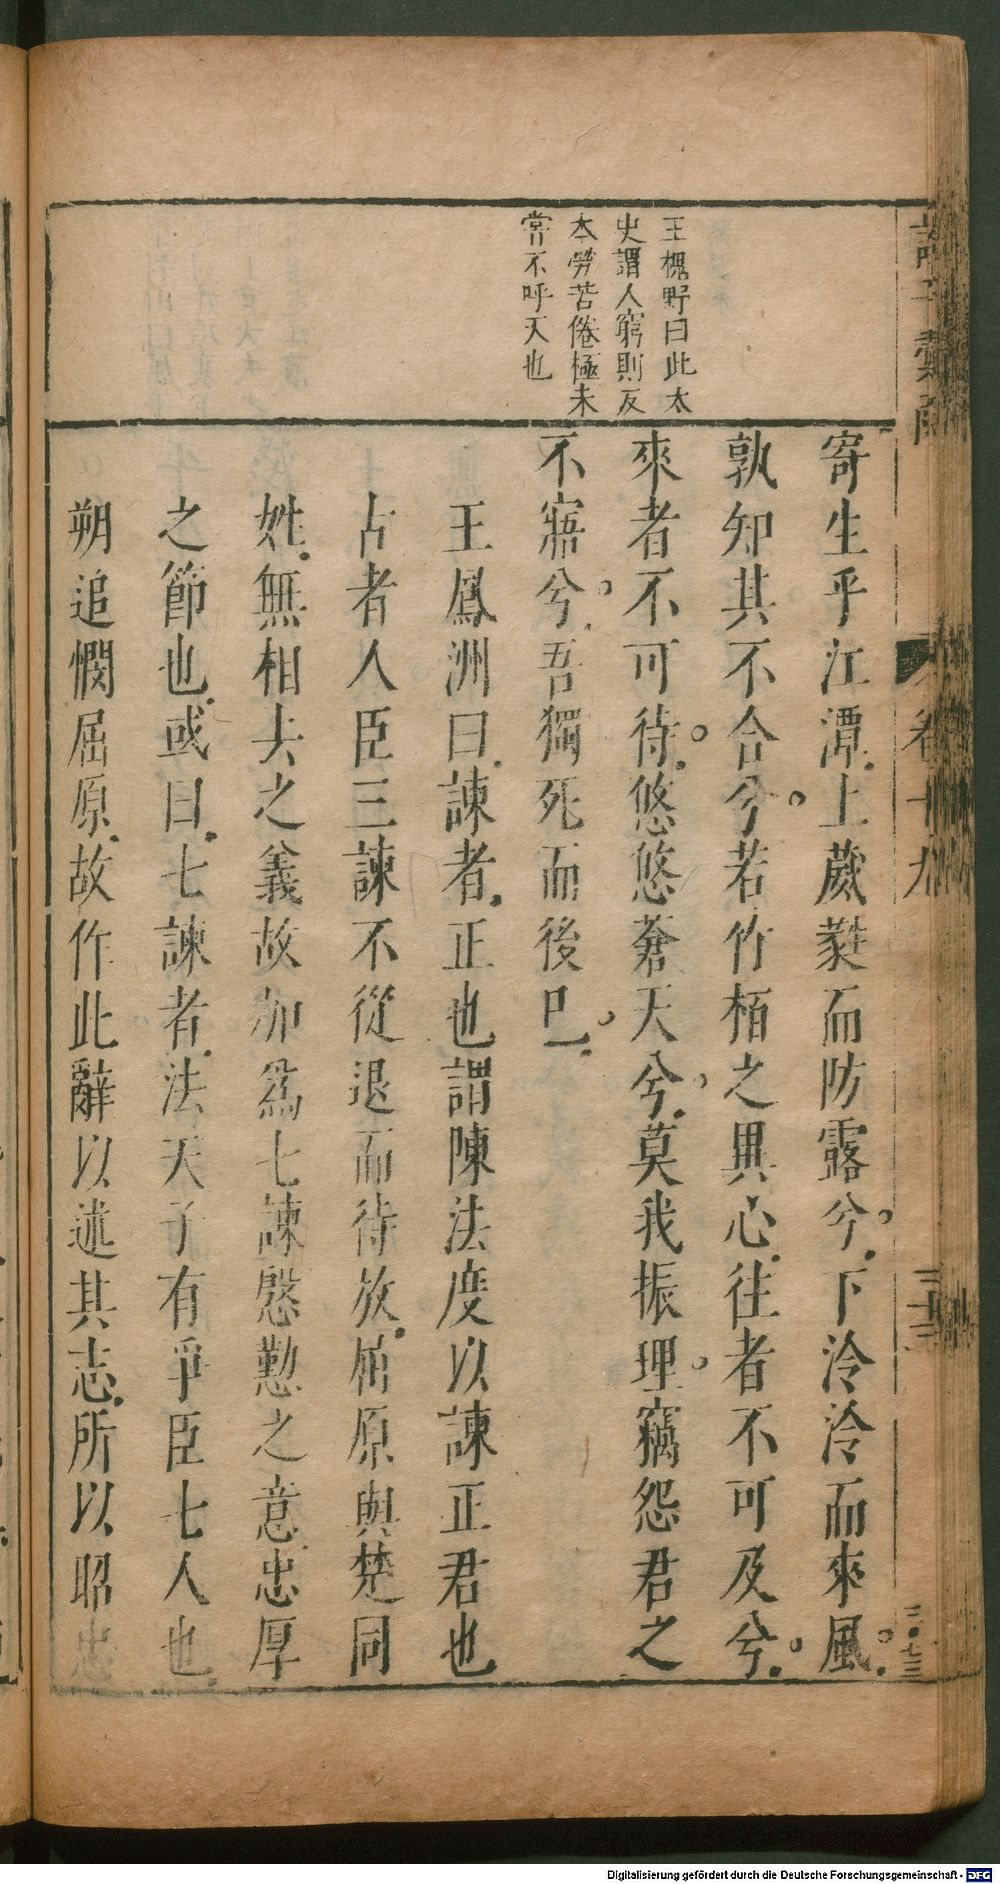 王槐野曰此太
史謂人窮則反
本勞苦倦極未
嘗不呼天也
寄生乎江潭上葳蕤而防露兮下泠泠而來風
孰知其不合兮若竹栢之異心往者不可及兮
來者不可待悠悠蒼天兮莫我振理竊怨君之
不寤兮吾獨死而後已
王鳳洲曰諫者正也謂陳法度以諫正君也
古者人臣三諫不從退而待放屈原與楚同
姓無相去之義故加爲七諫慇懃之意忠厚
之節也或曰七諫者法天子有爭臣七人也
朔追憫屈原故作此辭以述其志所以昭忠
卷十九
三十三
Digitalisierung gefördert durch die Deutsche Forschungsgemeinschaft - DFG